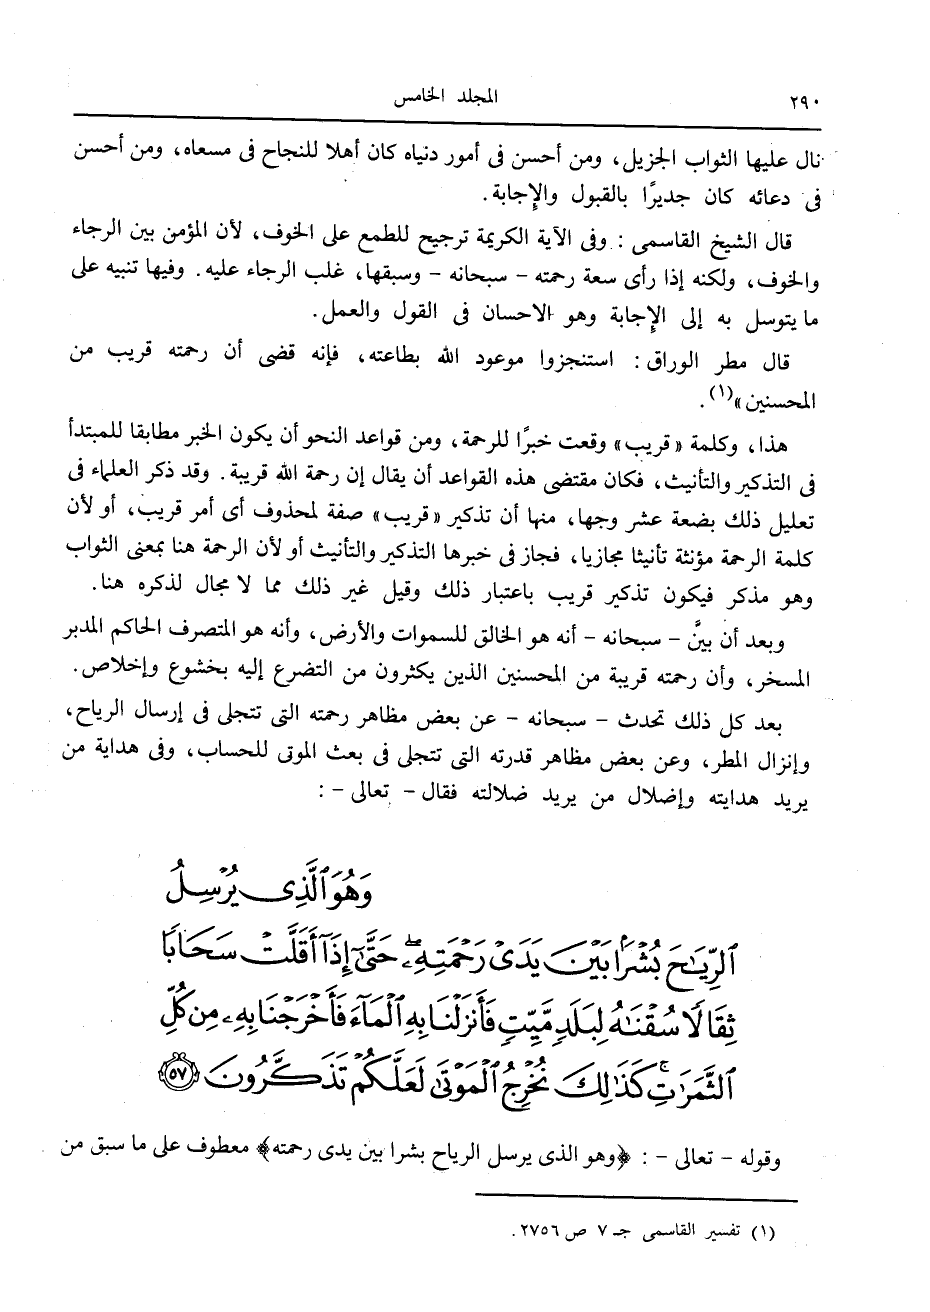 ٢٩٠
المجلد الخامس
نال عليها الثواب الجزيل، ومن أحسن فى أمور دنياه كان أهلا للنجاح فى مسعاه، ومن أحسن
فى دعائه كان جديرًا بالقبول والإجابة.
قال الشيخ القاسمى : وفى الآية الكريمة ترجيح للطمع على الخوف، لأن المؤمن بين الرجاء
والخوف، ولكنه إذا رأى سعة رحمته - سبحانه - وسبقها، غلب الرجاء عليه. وفيها تنبيه على
ما يتوسل به إلى الإجابة وهو الاحسان فى القول والعمل.
قال مطر الوراق : استنجزوا موعود الله بطاعته، فإنه قضى أن رحمته قريب من
المحسنين»(١).
هذا، وكلمة «قريب» وقعت خبرًا للرحمة، ومن قواعد النحو أن يكون الخبر مطابقا للمبتدأ
فى التذكير والتأنيث، فكان مقتضى هذه القواعد أن يقال إن رحمة الله قريبة. وقد ذكر العلماء فى
تعليل ذلك بضعة عشر وجها، منها أن تذكير «قريب» صفة لمحذوف أى أمر قريب، أو لأن
كلمة الرحمة مؤنثة تأنيثا مجازيا، فجاز فى خبرها التذكير والتأنيث أو لأن الرحمة هنا بمعنى الثواب
وهو مذكر فيكون تذكير قريب باعتبار ذلك وقيل غير ذلك مما لا مجال لذكره هنا.
وبعد أن بينَّ - سبحانه - أنه هو الخالق للسموات والأرض، وأنه هو المتصرف الحاكم المدبر
المسخر، وأن رحمته قريبة من المحسنين الذين يكثرون من التضرع إليه بخشوع وإخلاص.
بعد كل ذلك تحدث - سبحانه - عن بعض مظاهر رحمته التى تتجلى فى إرسال الرياح،
وإنزال المطر، وعن بعض مظاهر قدرته التى تتجلى فى بعث الموتى للحساب، وفى هداية من
يريد هدايته وإضلال من يريد ضلالته فقال - تعالى - :
وَهُوَ ٱلَّذِى يُرۡسِلُ
ٱلرِّيَٰحَ بُشۡرَۢا بَيۡنَ يَدَىۡ رَحۡمَتِهِۦۖ حَتَّىٰٓ إِذَآ أَقَلَّتۡ سَحَابٗا
ثِقَالٗا سُقۡنَٰهُ لِبَلَدٖ مَّيِّتٖ فَأَنزَلۡنَا بِهِ ٱلۡمَآءَ فَأَخۡرَجۡنَا بِهِۦ مِن كُلِّ
ٱلثَّمَرَٰتِۚ كَذَٰلِكَ نُخۡرِجُ ٱلۡمَوۡتَىٰ لَعَلَّكُمۡ تَذَكَّرُونَ ٥٧
وقوله - تعالى - : ﴿وهو الذى يرسل الرياح بشرا بين يدى رحمته﴾ معطوف على ما سبق من
(١) تفسير القاسمى جـ ٧ ص ٢٧٥٦.